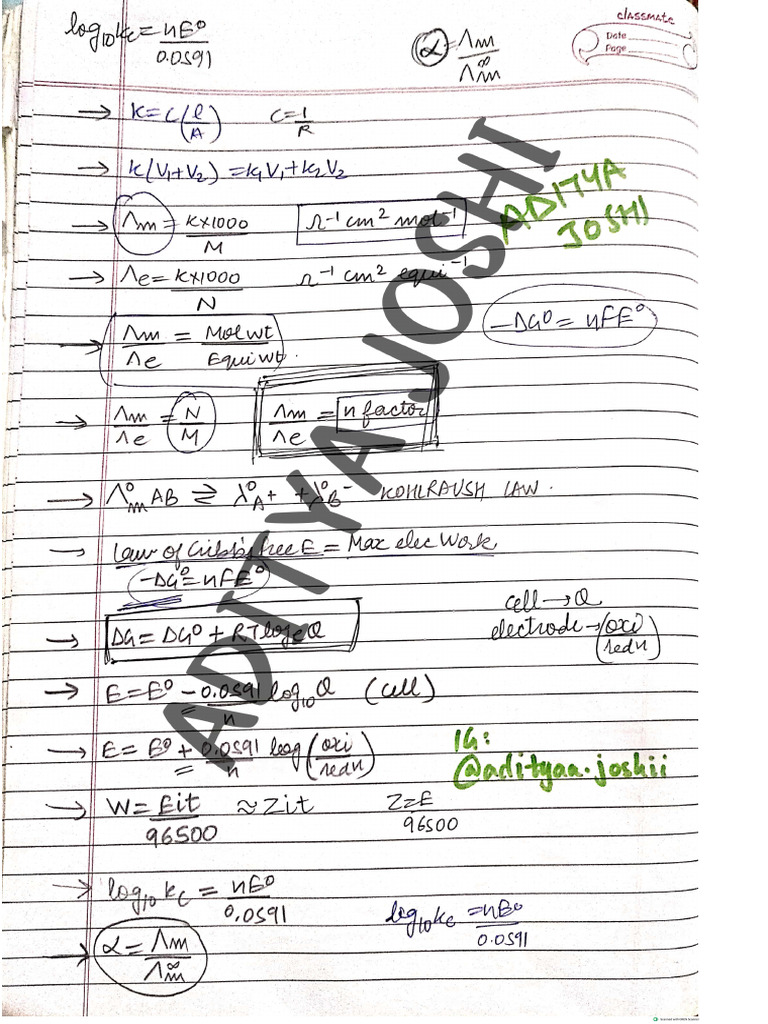 log₁₀kc = nE⁰/0.0591
α = Λm/Λm^∞
classmate
Date
Page
→ K = C(l/A) C = 1/R
→ k(V₁+V₂) = k₁V₁ + k₂V₂
→ Λm = K×1000/M Ω⁻¹ cm² mol⁻¹
ADITYA
JOSHI
→ Λe = K×1000/N Ω⁻¹ cm² equi⁻¹
→ Λm/Λe = Mol wt/Equi wt.
-ΔG⁰ = nFE⁰
→ Λm/Λe = N/M Λm/Λe = n factor
→ Λ⁰m AB ⇌ λ⁰A⁺ + λ⁰B⁻ KOHLRAUSH LAW.
→ Law of Gibb's free E = Max elec Work
-ΔG⁰ = nFE⁰
cell → Q
electrode → (oxi/redn)
→ ΔG = ΔG⁰ + RT logeQ
→ E = E⁰ - 0.0591/n log₁₀Q (cell)
→ E = E⁰ + 0.0591/n log(oxi/redn)
IG:
@adityaa.joshii
→ W = Eit/96500 ≈ Zit Z = E/96500
→ log₁₀kc = nE⁰/0.0591
log₁₀kc = nE⁰/0.0591
→ α = Λm/Λm^∞
ADITYA JOSHI
Scanned with OKEN Scanner